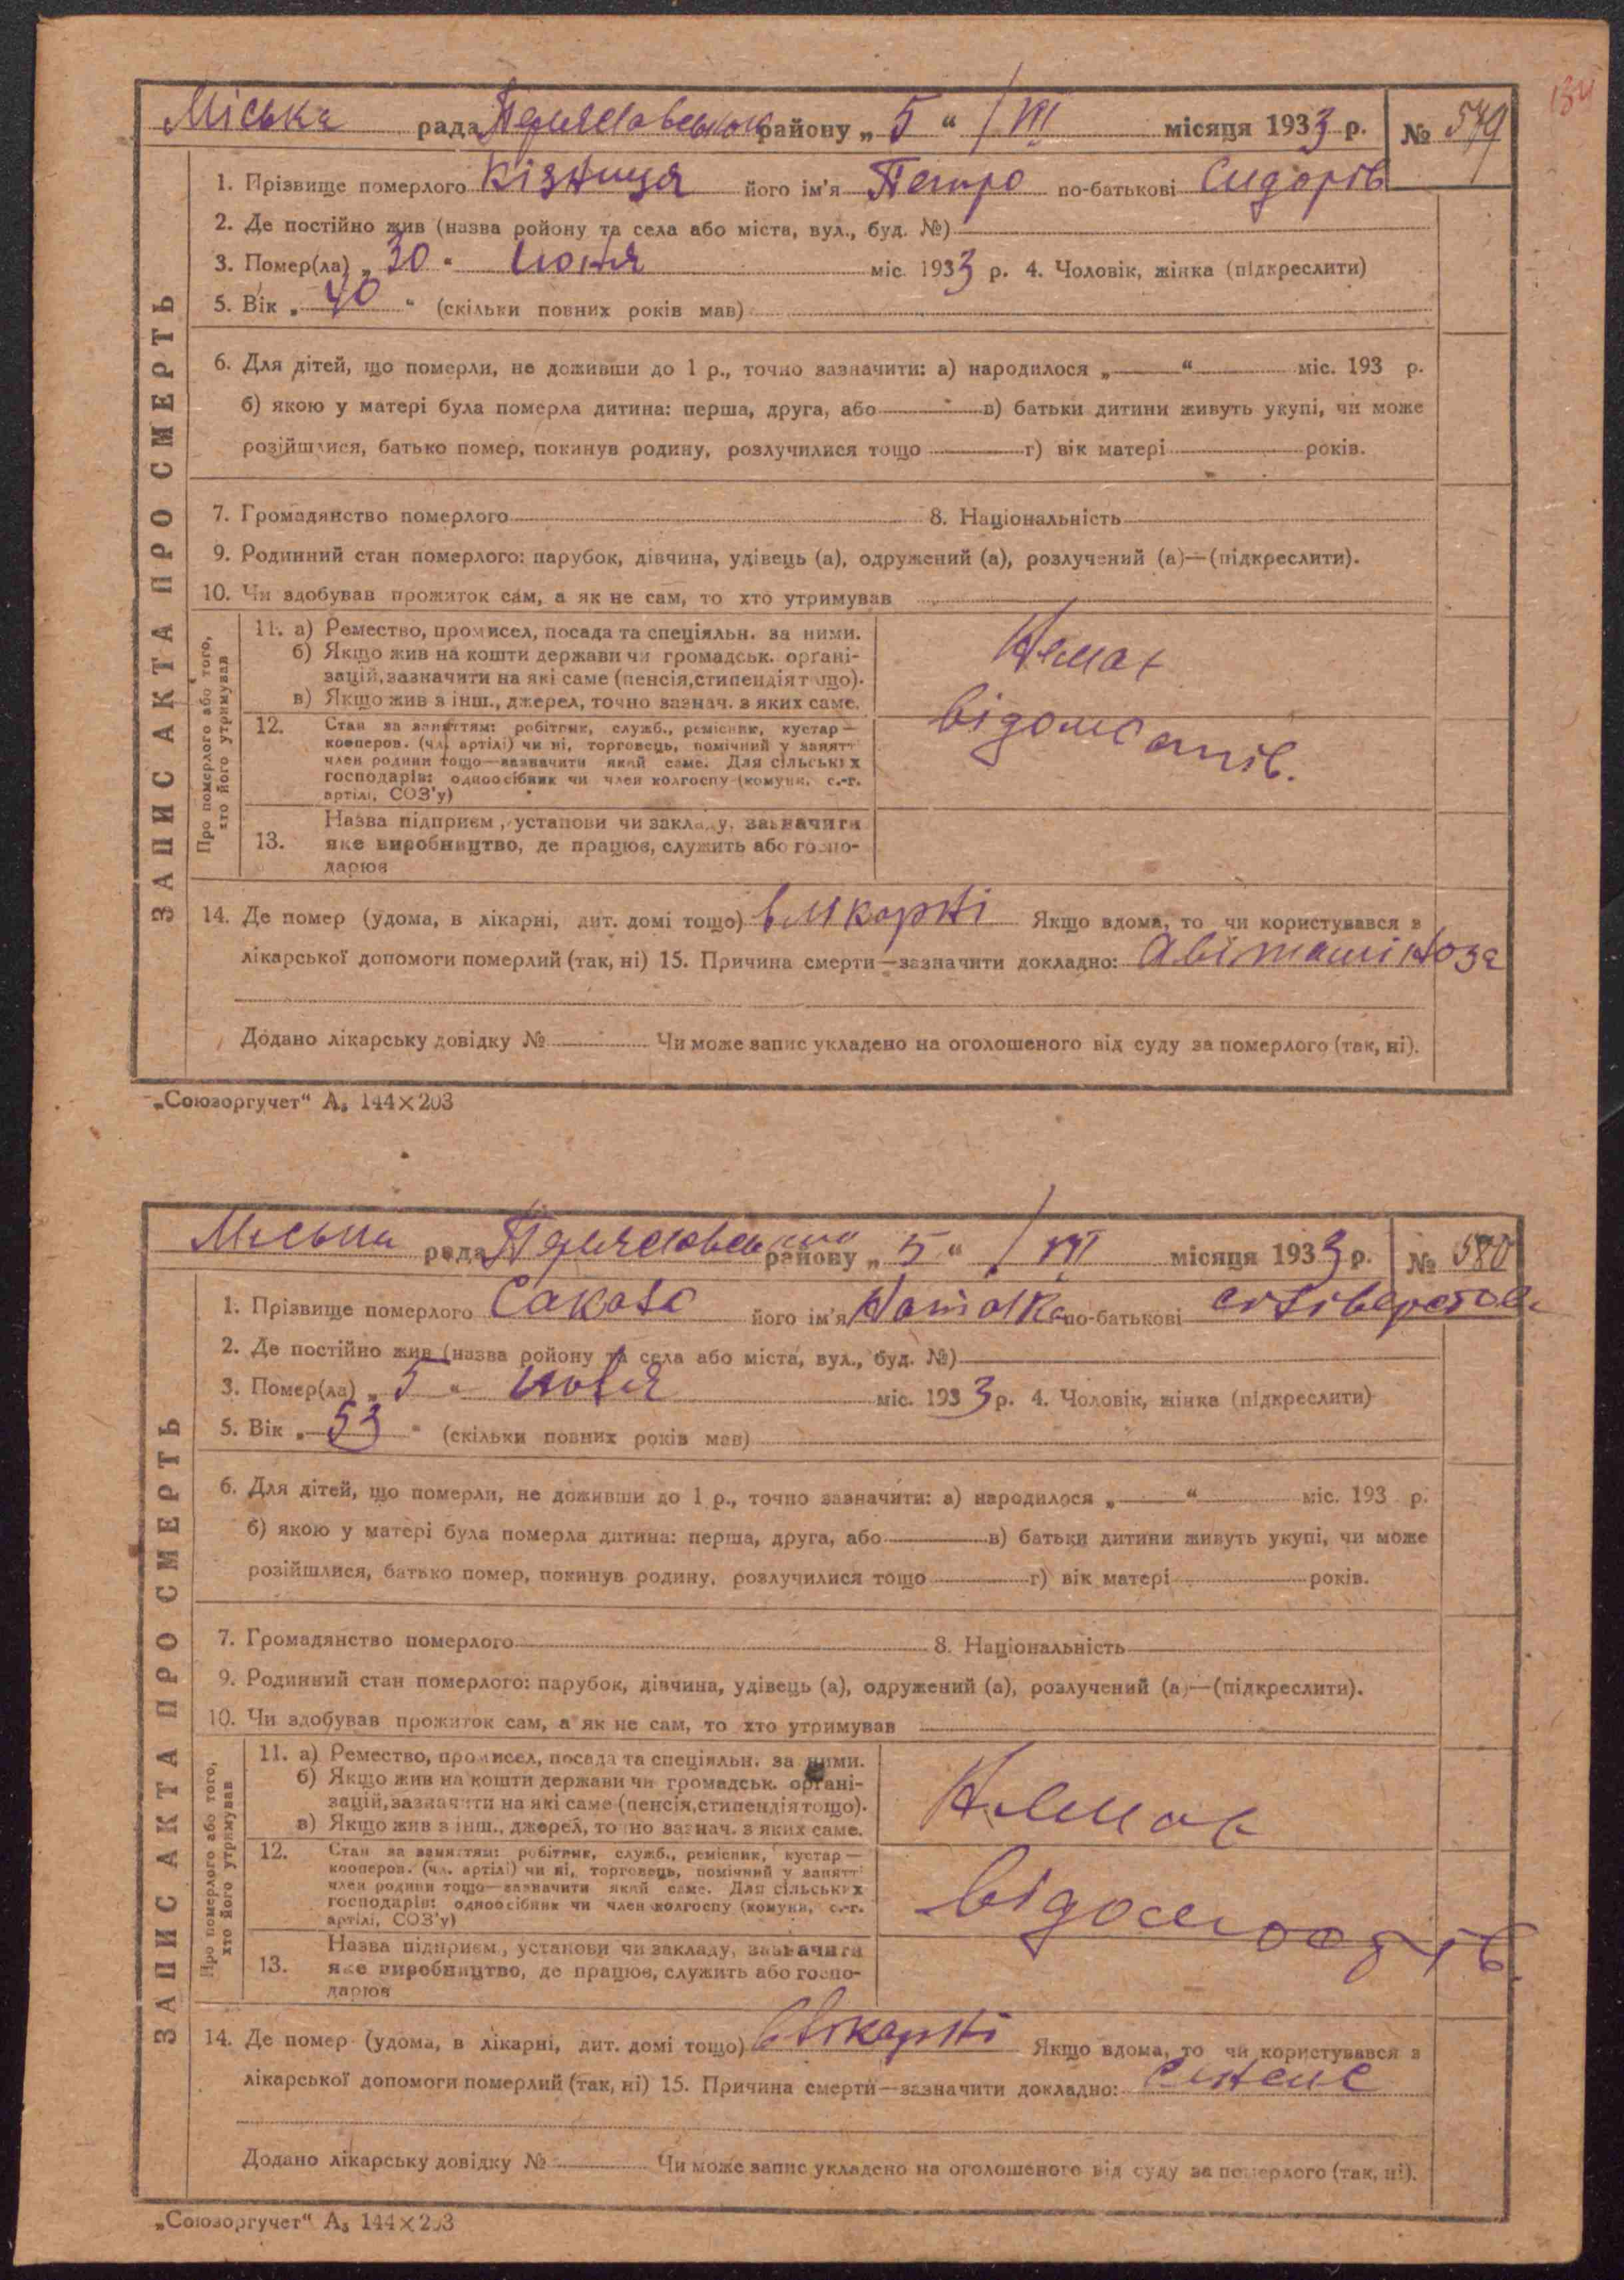 134
Міська рада Переяславськ району „ 5 “ / VII місяця 1933 р. № 579
1. Прізвище померлого Візниця його ім'я Петро по-батькові Сидорів
2. Де постійно жив (назва ройону та села або міста, вул., буд. №)
3. Помер(ла) „ 30 “ июня міс. 1933 р. 4. Чоловік, жінка (підкреслити)
5. Вік „ 40 “ (скільки повних років мав)
6. Для дітей, що померли, не доживши до 1 р., точно зазначити: а) народилося „ “ міс. 193 р.
б) якою у матері була померла дитина: перша, друга, або в) батьки дитини живуть укупі, чи може
розійшлися, батько помер, покинув родину, розлучилися тощо г) вік матері років.
7. Громадянство померлого 8. Національність
9. Родинний стан померлого: парубок, дівчина, удівець (а), одружений (а), розлучений (а)—(підкреслити).
10. Чи здобував прожиток сам, а як не сам, то хто утримував
ЗАПИС АКТА ПРО СМЕРТЬ
Про померлого або того,
хто його утримував
11. а) Ремество, промисел, посада та спеціяльн. за ними.
б) Якщо жив на кошти держави чи громадськ. органі-
зацій, зазначити на які саме (пенсія, стипендія тощо).
в) Якщо жив з інш., джерел, точно зазнач. з яких саме.
Немає
12. Стан за заняттям: робітник, служб., ремісник, кустар—
кооперов. (чл. артілі) чи ні, торговець, помічний у занятті
член родини тощо—зазначити який саме. Для сільських
господарів: одноосібник чи член колгоспу (комуни, с.-г.
артілі, СОЗ'у)
відомостів.
13. Назва підприєм., установи чи закладу, зазначити
яке виробництво, де працює, служить або госпо-
дарює
14. Де помер (удома, в лікарні, дит. домі тощо) в лікарні Якщо вдома, то чи користувався з
лікарської допомоги померлий (так, ні) 15. Причина смерти—зазначити докладно: авітаміноза
Додано лікарську довідку № Чи може запис укладено на оголошеного від суду за померлого (так, ні).
„Союзоргучет“ А₅ 144×203
Міська рада Переяславськ району „ 5 “ / VII місяця 1933 р. № 580
1. Прізвище померлого його ім'я по-батькові
2. Де постійно жив (назва ройону та села або міста, вул., буд. №)
3. Помер(ла) „ 5 “ июля міс. 1933 р. 4. Чоловік, жінка (підкреслити)
5. Вік „ 53 “ (скільки повних років мав)
6. Для дітей, що померли, не доживши до 1 р., точно зазначити: а) народилося „ “ міс. 193 р.
б) якою у матері була померла дитина: перша, друга, або в) батьки дитини живуть укупі, чи може
розійшлися, батько помер, покинув родину, розлучилися тощо г) вік матері років.
7. Громадянство померлого 8. Національність
9. Родинний стан померлого: парубок, дівчина, удівець (а), одружений (а), розлучений (а)—(підкреслити).
10. Чи здобував прожиток сам, а як не сам, то хто утримував
ЗАПИС АКТА ПРО СМЕРТЬ
Про померлого або того,
хто його утримував
11. а) Ремество, промисел, посада та спеціяльн. за ними.
б) Якщо жив на кошти держави чи громадськ. органі-
зацій, зазначити на які саме (пенсія, стипендія тощо).
в) Якщо жив з інш., джерел, точно зазнач. з яких саме.
Немає
12. Стан за заняттям: робітник, служб., ремісник, кустар—
кооперов. (чл. артілі) чи ні, торговець, помічний у занятті
член родини тощо—зазначити який саме. Для сільських
господарів: одноосібник чи член колгоспу (комуни, с.-г.
артілі, СОЗ'у)
відомостів.
13. Назва підприєм., установи чи закладу, зазначити
яке виробництво, де працює, служить або госпо-
дарює
14. Де помер (удома, в лікарні, дит. домі тощо) в лікарні Якщо вдома, то чи користувався з
лікарської допомоги померлий (так, ні) 15. Причина смерти—зазначити докладно:
Додано лікарську довідку № Чи може запис укладено на оголошеного від суду за померлого (так, ні).
„Союзоргучет“ А₅ 144×203